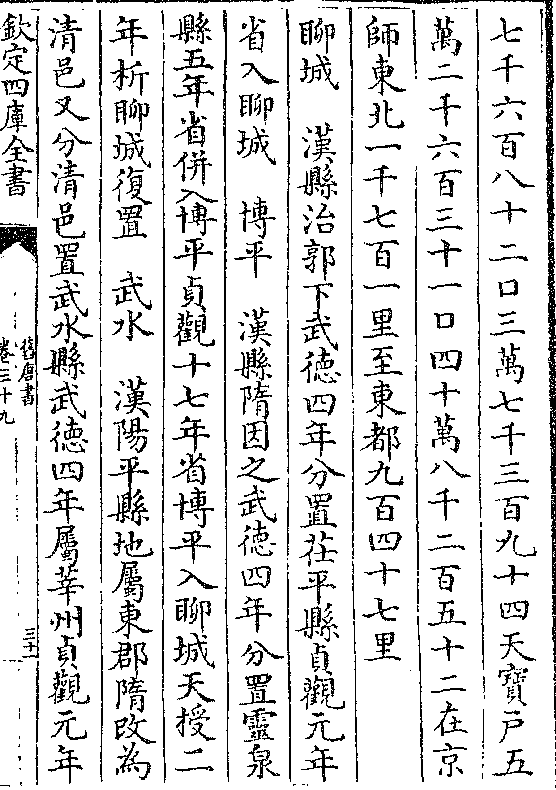 七千六百八十二口三萬七千三百九十四天寶戸五
萬二千六百三十一口四十萬八千二百五十二在京
師東北一千七百一里至東都九百四十七里
聊城　漢縣治郭下武德四年分置茌平縣貞觀元年
省入聊城　博平　漢縣隋因之武德四年分置靈泉
縣五年省併入博平貞觀十七年省博平入聊城天授二
年析聊城復置　武水　漢陽平縣地屬東郡隋改為
清邑又分清邑置武水縣武德四年屬莘州貞觀元年
欽定四庫全書
舊唐書
卷三十九
三十一